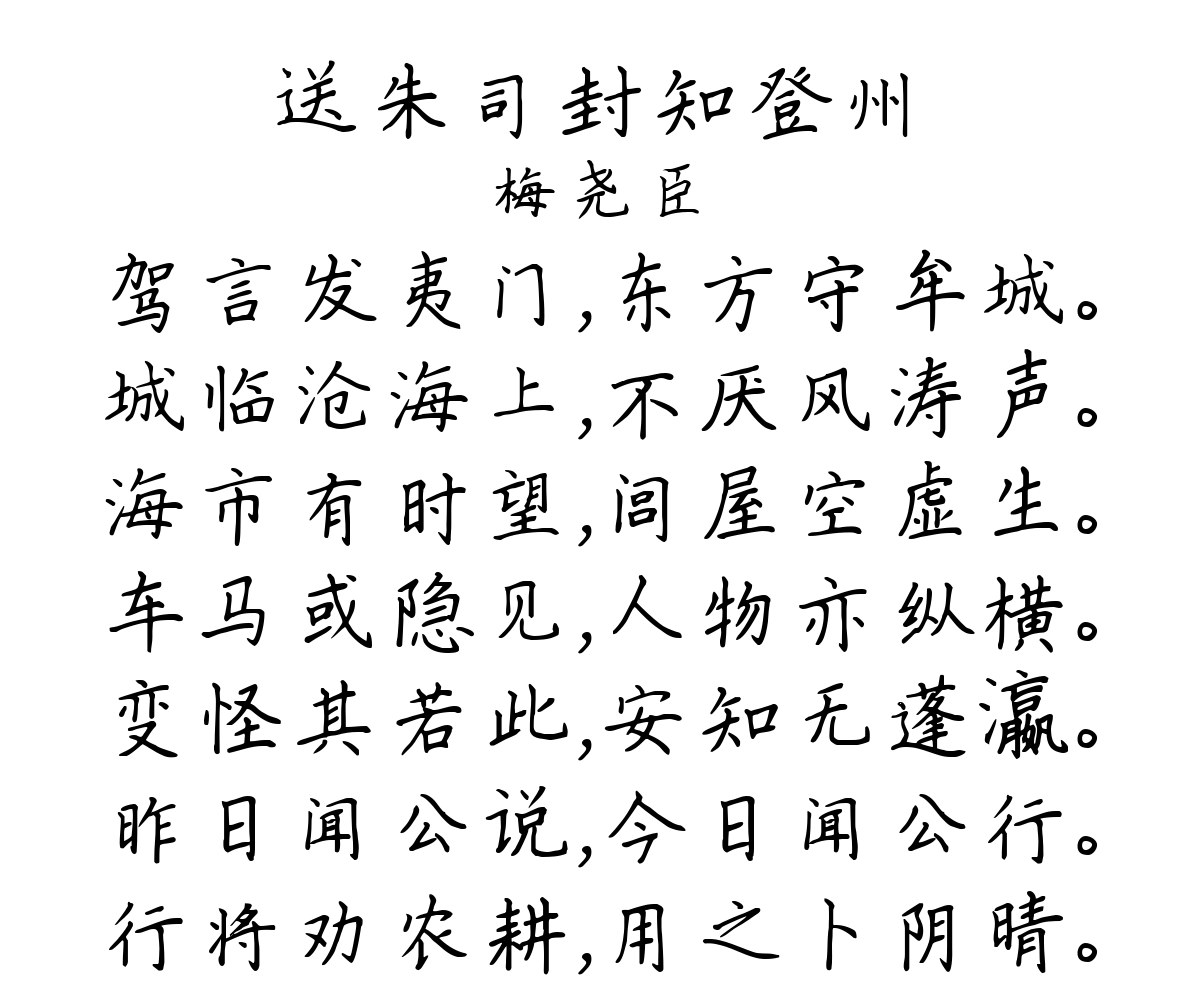 送朱司封知登州
梅尧臣
驾言发夷门,东方守牟城。
城临沧海上,不厌风涛声。
海市有时望,闾屋空虚生。
车马或隐见,人物亦纵横。
变怪其若此,安知无蓬瀛。
昨日闻公说,今日闻公行。
行将劝农耕,用之卜阴晴。